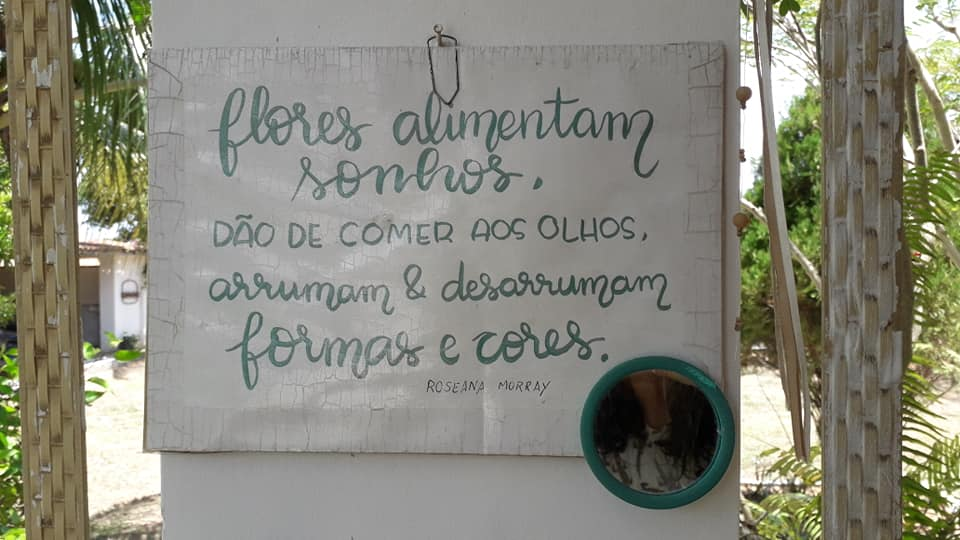 flores alimentam
sonhos,
DÃO DE COMER AOS OLHOS,
arrumam & desarrumam
formas e cores.
ROSEANA MORRAY